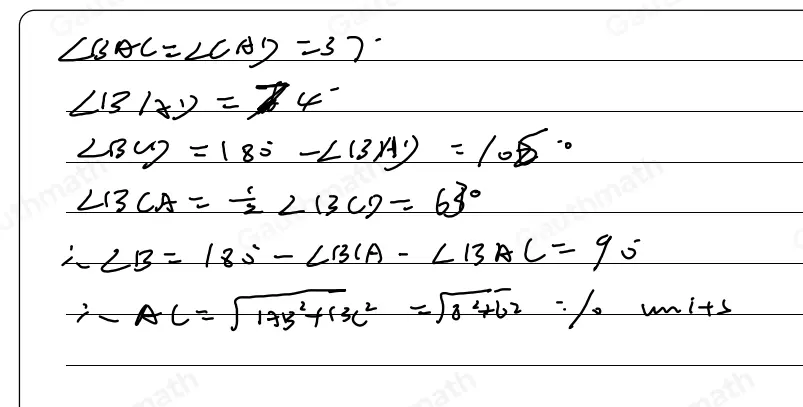 ∠BAC=∠CAD=37°
∠BAD=74°
∠BCD=180°-∠BAD=106°
∠BCA=½∠BCD=63°
∴∠B=180°-∠BCA-∠BAC=90°
∴AC=√(AB²+BC²)=√(8²+6²)=10 units